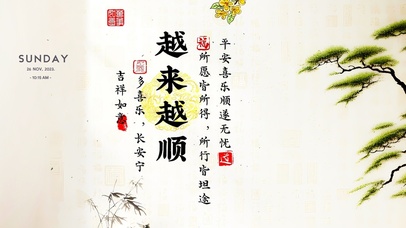 SUNDAY
26 NOV, 2023.
- 10:15 AM -
平安喜乐顺遂无忧
所愿皆所得，所行皆坦途
越来越顺
多喜乐，长安宁
吉祥如意